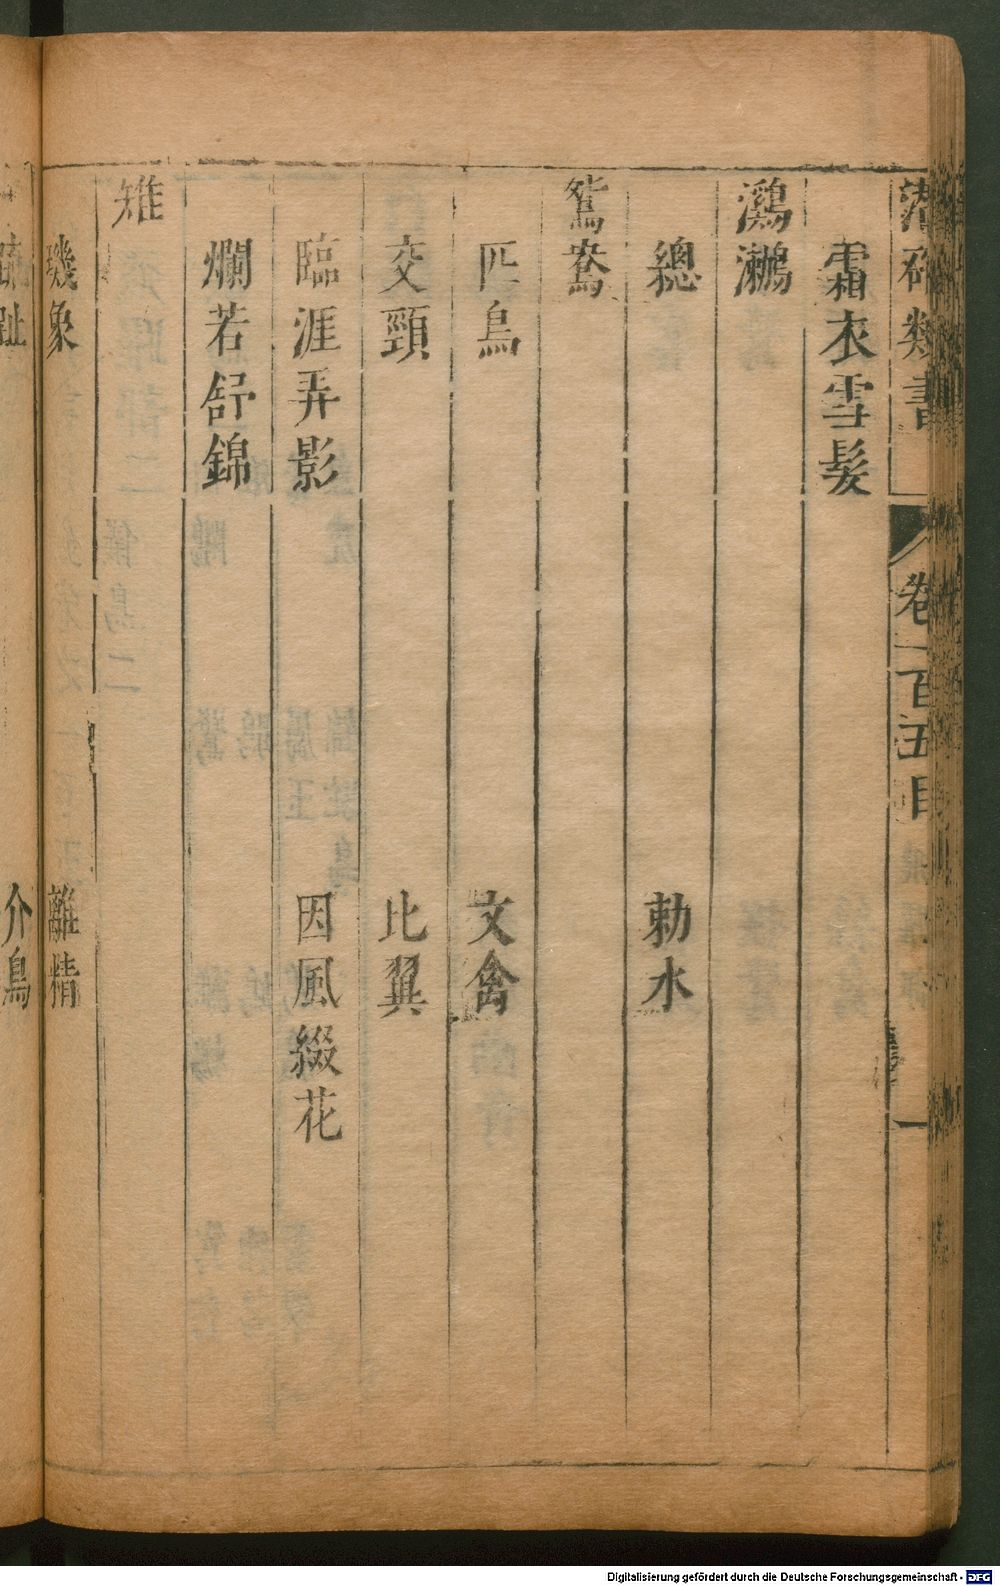 潛確類書 卷一百五目 一
霜衣雪髮
鸂鶒
總 勅水
鴛鴦
匹鳥 文禽
交頸 比翼
臨涯弄影 因風綴花
爛若舒錦
雉
璣象 離精
疏趾 介鳥
Digitalisierung gefördert durch die Deutsche Forschungsgemeinschaft - DFG